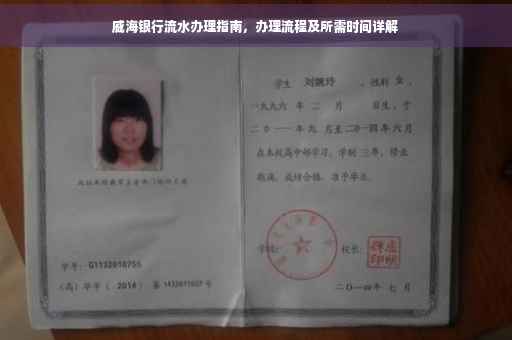 威海银行流水办理指南，办理流程及所需时间详解
学生 刘婉玲 ，性别 女 ，
一九九六 年 二 月 日生，于
二〇一一年九 月至二〇一四年六月
在本校高中部学习，学制 三年，修业
期满，成绩合格，准予毕业。
学校： 校长：
学号： G1132010755
（高）毕字（ 2014 ）第 1432011027 号
二〇一四年 七 月